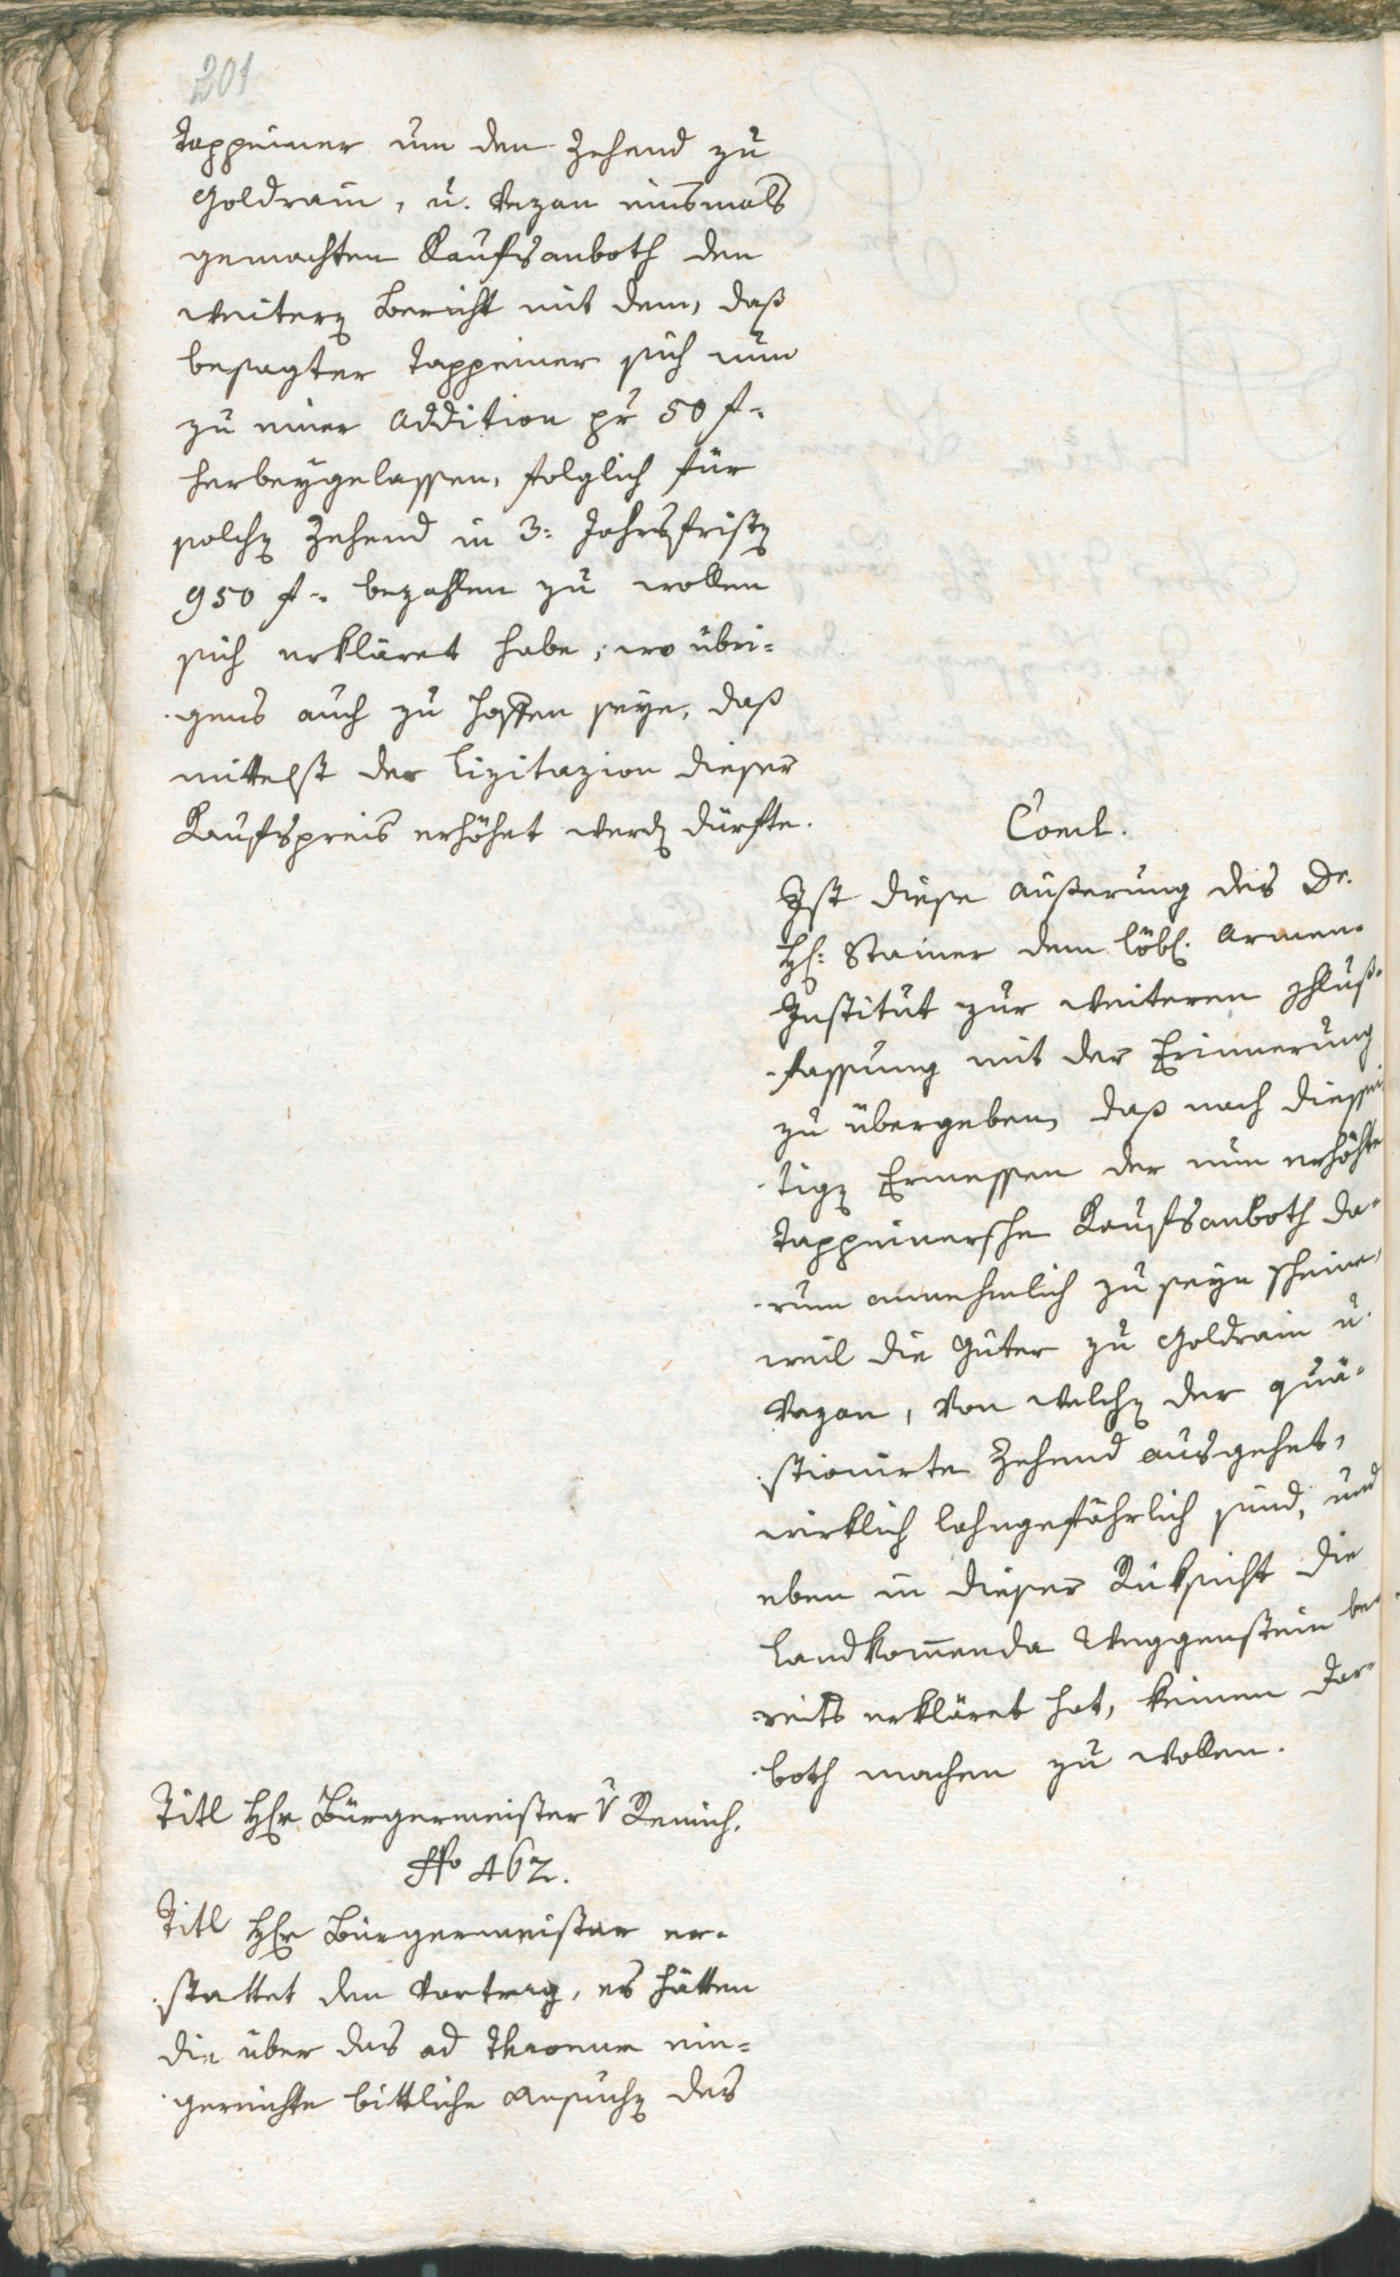 201
Tappeiner um den Zehend zu
Goldrain, u. Vezan einsmals
gemachten Kaufsanboth den
weitern Bericht mit dem, daß
besagter Tappeiner sich nun
zu einer Addition pr 50 f:
herbeygelassen, folglich für
solchen Zehend in 3: Jahrsfristen
950 f: bezahlen zu wollen
sich erkläret habe; wo übri=
gens auch zu hoffen seye, daß
mittelst der Lizitazion dieser
Kaufspreis erhöhet werden dürfte.
Concl.
Ist diese äusserung des Dr.
H: Stainer dem löbl. Armen=
Institut zur weiteren Schluß=
fassung mit der Erinnerung
zu übergeben, daß nach diessei
tigen Ermessen der nun erhöhte
Tappeinersche Kaufsanboth da=
rum annehmlich zu seyn scheine,
weil die Güter zu Goldrain u.
Vezan, von welchen der quä=
stionirte Zehend ausgehet,
wirklich lahngefährlich sind, und
eben in dieser Rüksicht die
Landkomenda Weggenstein be=
reits erkläret hat, keinen Dar=
both machen zu wollen.
Titl Hr Bürgermeister v Remich.
No 462.
Titl Hr Bürgermeister er=
stattet den Vortrag, es hätten
die über das ad Thronum ein=
gereichte bittliche Ansuchen des